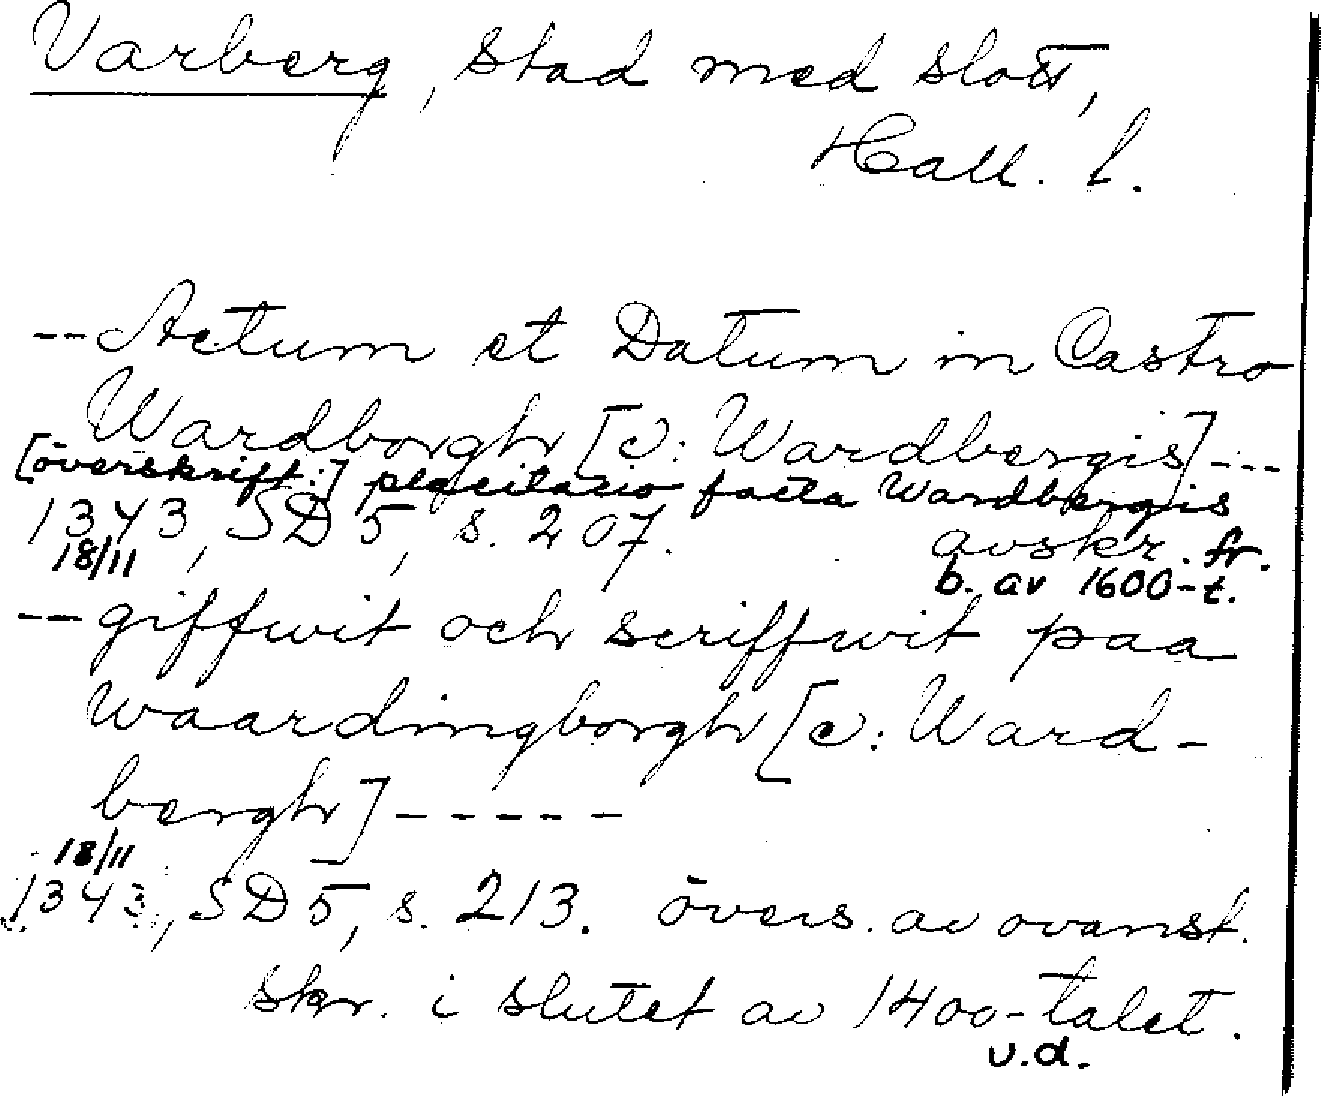 Varberg, stad med slott,
Hall. l.
--Actum et Datum in Castro
Wardborgh [ɔ: Wardbergis]---
[överskrift:] placitatio facta Wardbergis
1343, SD 5, s. 207. avskr. fr.
18/11 b. av 1600-t.
--giffwit och scriffwit paa
Waardingborgh [ɔ: Ward-
bergh]-----
18/11
1343, SD 5, s. 213. övers. av ovanst.
skr. i slutet av 1400-talet.
u.d.